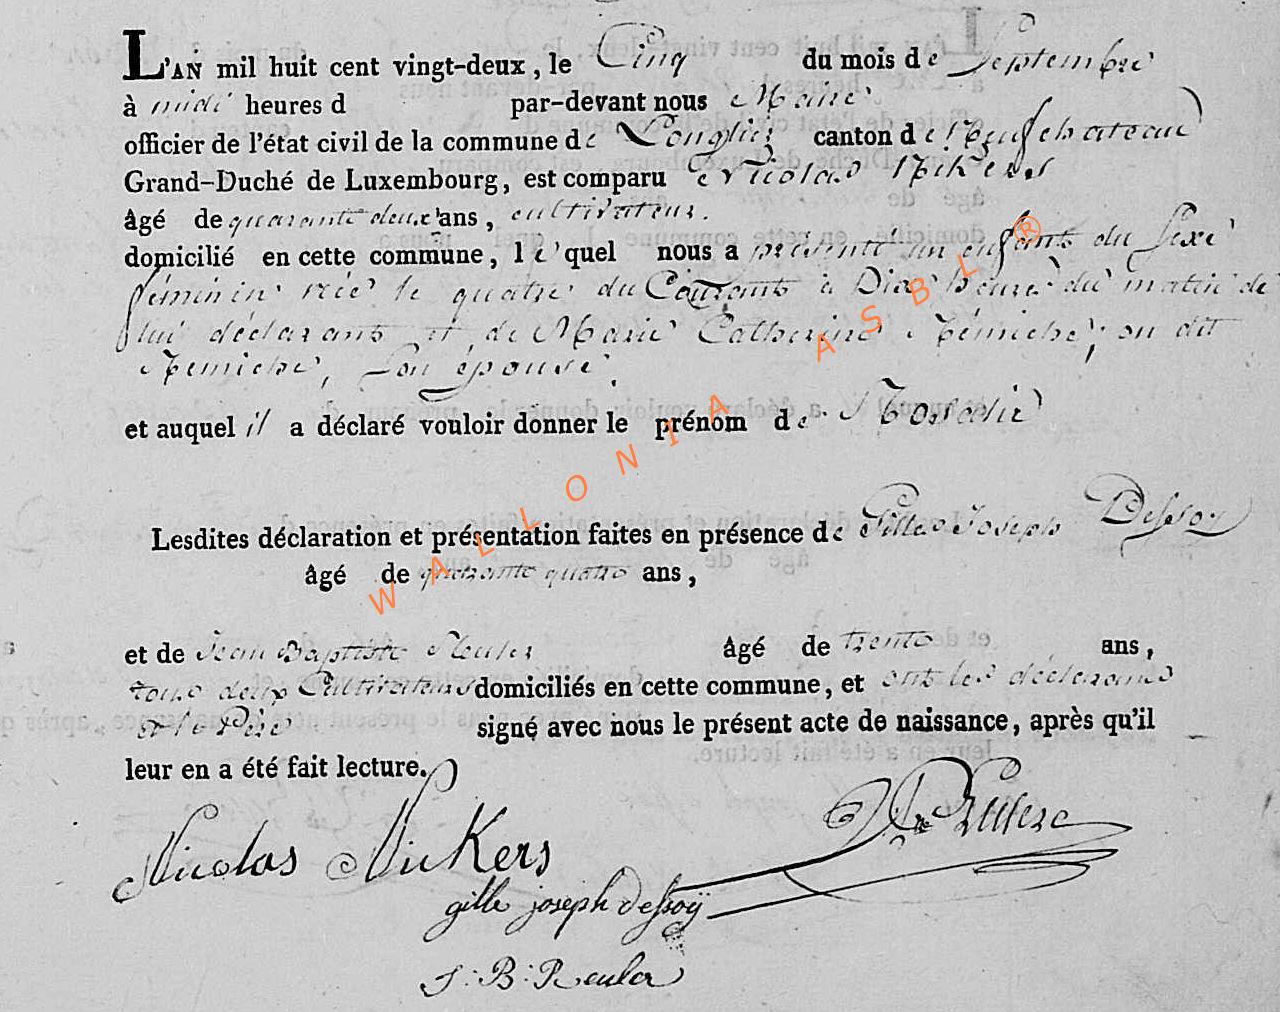 L'AN mil huit cent vingt-deux, le Cinq du mois de Septembre
à midi heures d par-devant nous Maire
officier de l'état civil de la commune de Longlier canton de Neufchateau
Grand-Duché de Luxembourg, est comparu Nicolas Nikers
âgé de quarante deux ans, cultivateur.
domicilié en cette commune, lequel nous a présenté un enfant du sexe
féminin née le quatre du Courant à Dix heures du matin de
lui déclarant et de Marie Catherine ; ou dit
son épouse.
et auquel il a déclaré vouloir donner le prénom de Rosalie
Lesdites déclaration et présentation faites en présence de Gille Joseph Dessoy
âgé de quarante quatre ans,
et de Jean Baptiste Reuler âgé de trente ans,
tous deux Cultivateurs domiciliés en cette commune, et ont les déclarans
et le Père signé avec nous le présent acte de naissance, après qu'il
leur en a été fait lecture.
Nicolas Nickers
gille joseph dessoÿ
J:B:Reuler
WALLONIA ASBL ®